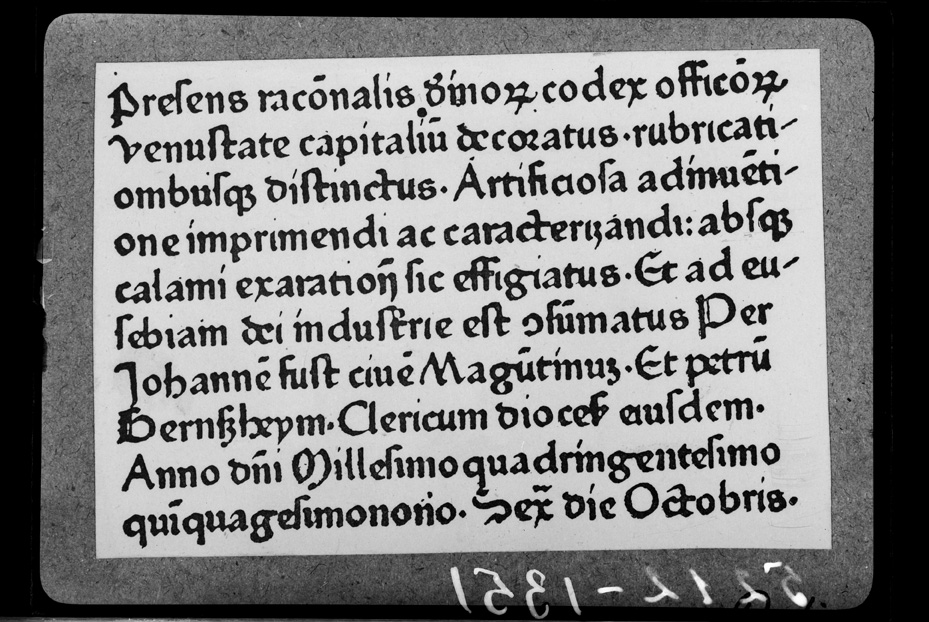 Presens racōnalis dı̄noꝝ codex officōꝝ
venustate capitaliū decoratus·rubricati-
onibusqꝫ distinctus· Artificiosa adinuēti-
one imprimendi ac caracteriȝandi: absqꝫ
calami exarationꝭ sic effigiatus·Et ad eu-
sebiam dei industrie est ↄsūmatus Per
Johannē fust ciuē Magūtinuȝ·Et petrū
Gernsȝheym·Clericum dioces eiusdem·
Anno dn̄i Millesimo quadringentesimo
quīquagesimonono· Sex̄ die Octobris·
5212-1351